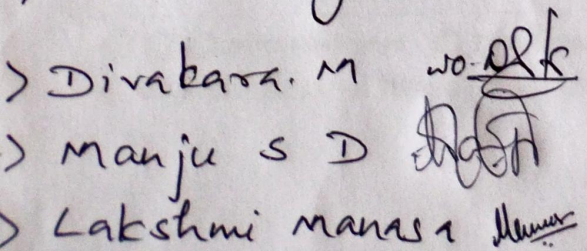 > Divakara. M
> Manju S D
> Lakshmi Manasa